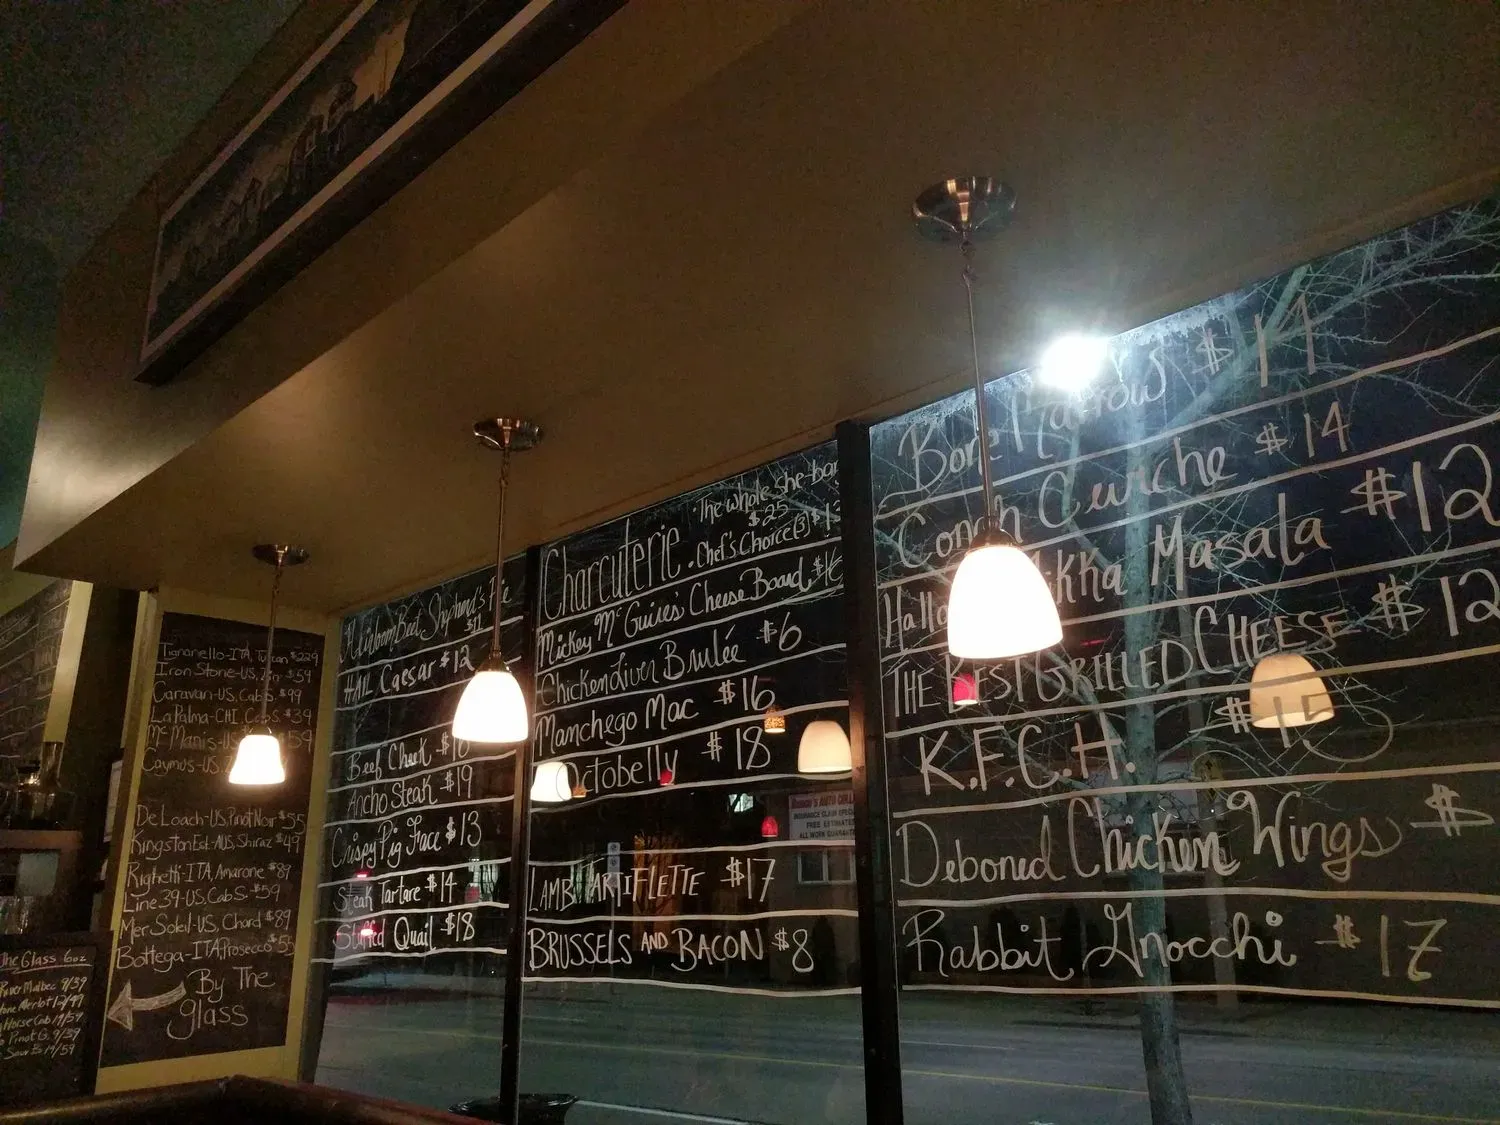 Tignanello-ITA, Tuscan $229
Iron Stone-US, Zin $59
Caravan-US, Cab S. $99
La Palma-CHI, Cab S. $39
McManis-US, $59
Caymus-US,
De Loach-US, Pinot Noir $55
Kingston Est.-AUS, Shiraz $49
Righetti-ITA, Amarone $89
Line 39-US, Cab S. $59
Mer Soleil-US, Chard $89
Bottega-ITA, Prosecco $55
By The
glass
The Glass 6oz
Malbec 9/39
Merlot 12/47
Horse Cab 14/59
Pinot G. 9/39
Sauv B 14/59
Heirloom Beet Shepherd's Pie
$11
HAIL Caesar $12
Beef Cheek
Ancho Steak $19
Crispy Pig Face $13
Steak Tartare $14
Stuffed Quail $18
Charcuterie
The whole she-bang
$25
Chef's Choice(3)
Mickey McGuires' Cheese Board $16
Chicken Liver Brulée $6
Manchego Mac $16
Octobelly $18
LAMB TARTIFLETTE $17
BRUSSELS AND BACON $8
AUTO COLL
INSURANCE CLAIM
FREE ESTIMATE
ALL WORK GUARANTE
Bone Marrow $14
Conch Ceviche $14
Hallo ikka Masala $12
THE BEST GRILLED CHEESE $12
K.F.C.H. $15
Deboned Chicken Wings $
Rabbit Gnocchi $17